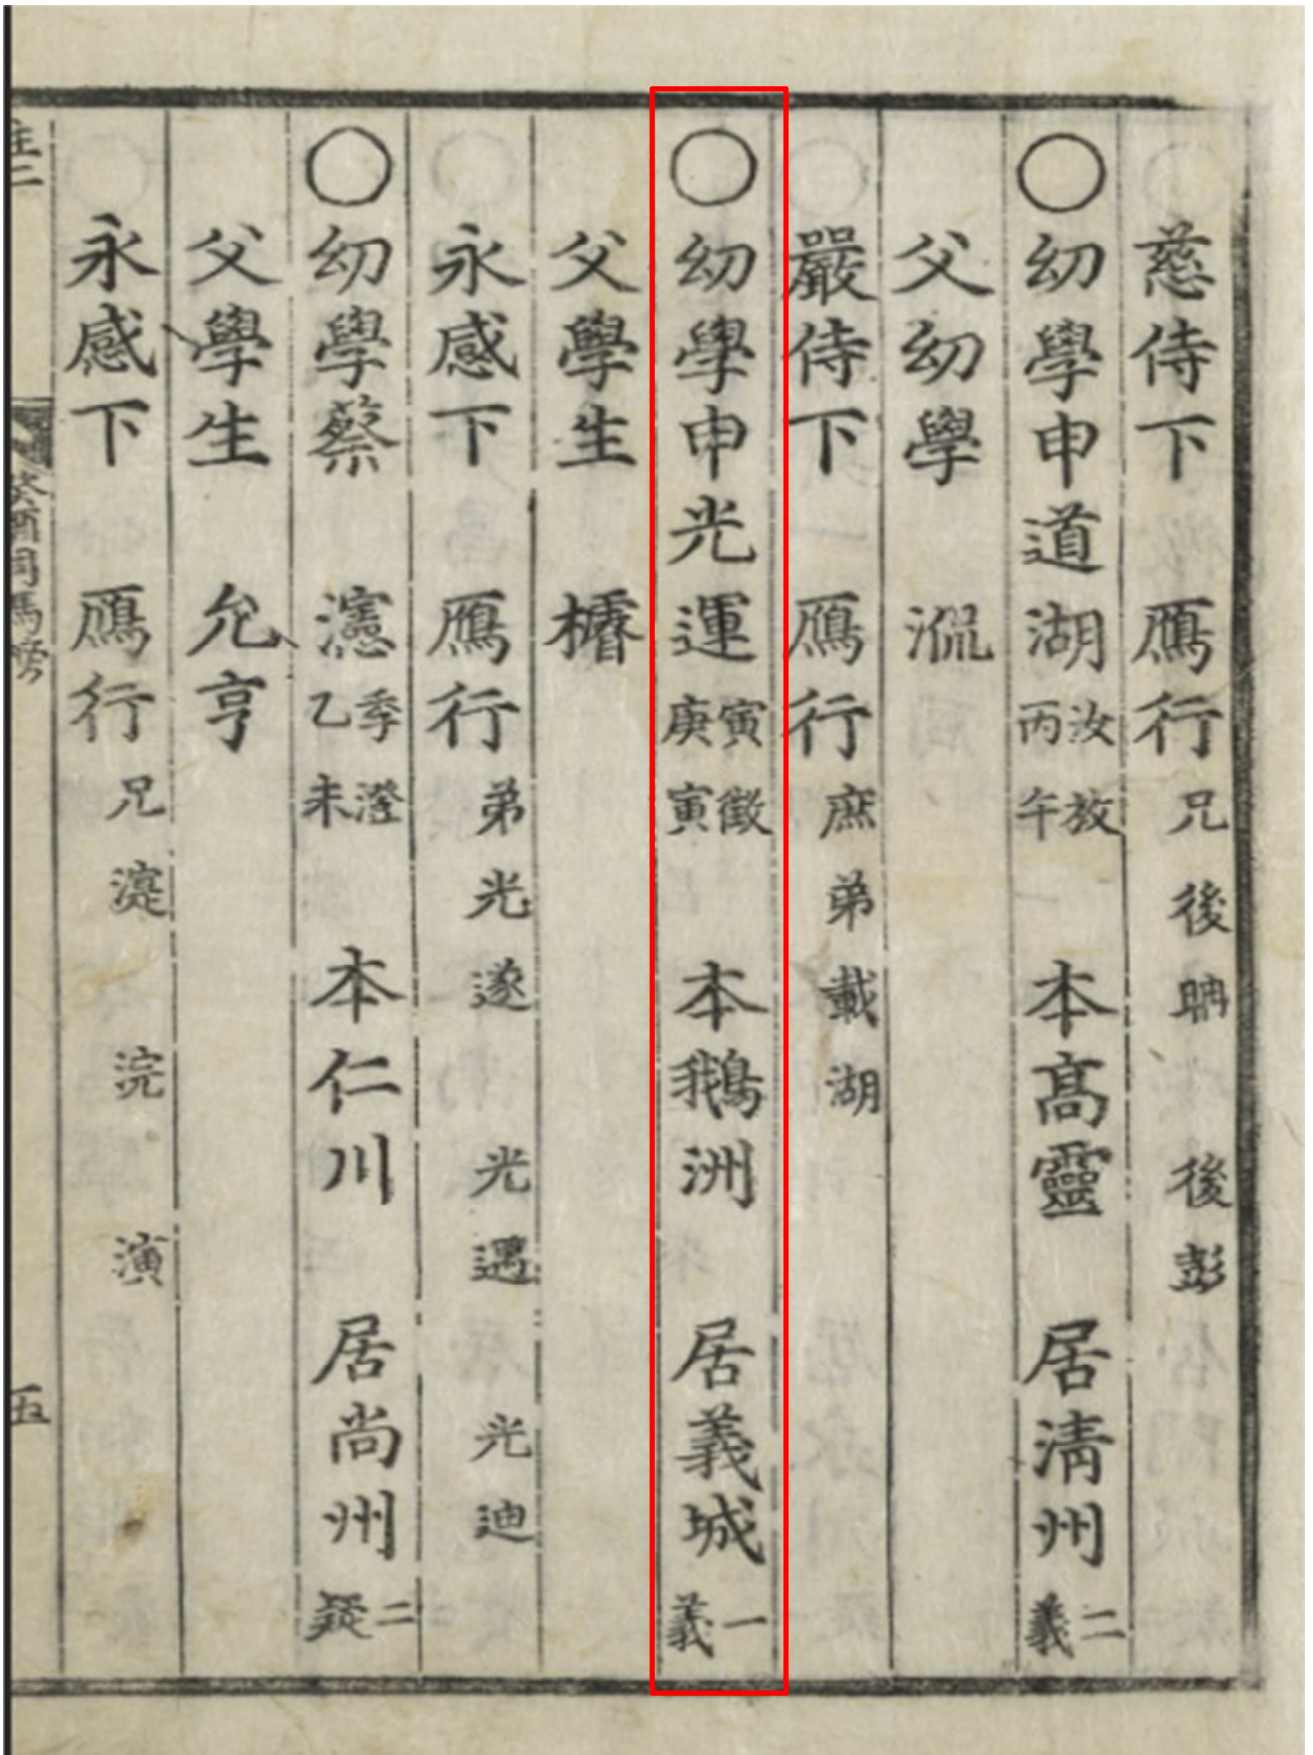 慈侍下 鴈行 兄後聃 後彭
○幼學申道湖 汝放 丙午 本髙靈 居淸州 二義
父幼學
嚴侍下 鴈行 庶弟載湖
○幼學申光運 寅徵 庚寅 本鵝洲 居義城 一義
父學生
永感下 鴈行 弟光遂 光遇 光迪
○幼學蔡瀗 季澄 乙未 本仁川 居尚州 二疑
父學生 允亨
永感下 鴈行 兄 浣 演
生二 癸酉司馬榜 五